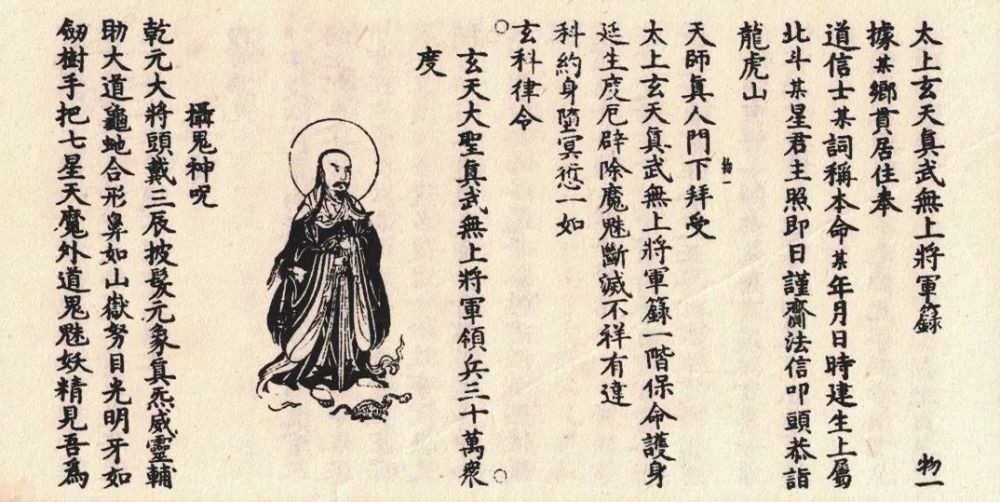 太上玄天真武無上將軍籙 物一
據某鄉貫居住奉
道信士某詞稱本命某年月日時建生上屬
北斗某星君主照即日謹齎法信叩頭恭詣
龍虎山
天師真人門下拜受
物一
太上玄天真武無上將軍籙一階保命護身
延生度厄辟除魔魅斷滅不祥有違
科約身墮冥愆一如
玄科律令
玄天大聖真武無上將軍領兵三十萬眾
度
攝鬼神呪
乾元大將頭戴三辰披髮元象真炁威靈輔
助大道龜虵合形鼻如山嶽努目光明牙如
劒樹手把七星天魔外道鬼魅妖精見吾為